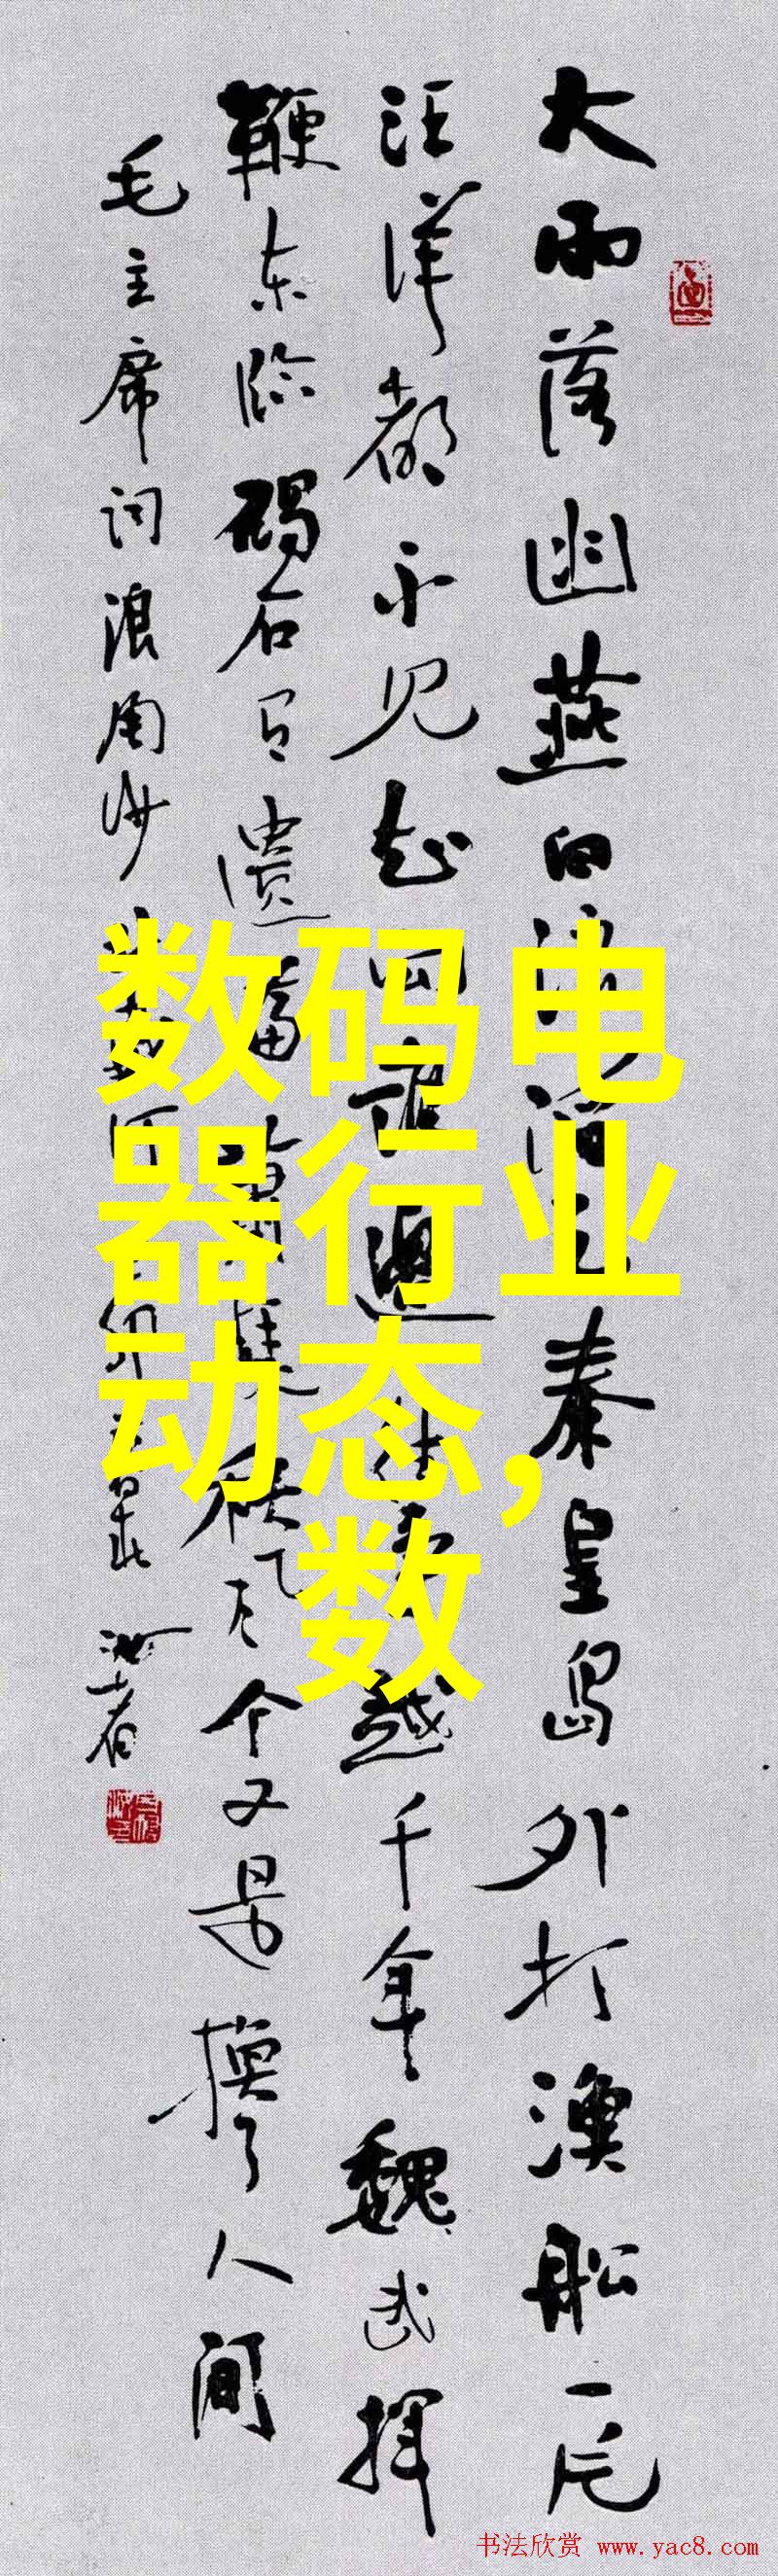 数码电
器行业
动态,
数
大雨落幽燕白浪滔天秦皇岛外打漁船一片
汪洋都不见知向谁边往事越千年魏武挥
鞭东临碣石有遗篇萧瑟秋风今又是换了人间
毛主席词浪淘沙
书法欣赏 www.yac8.com